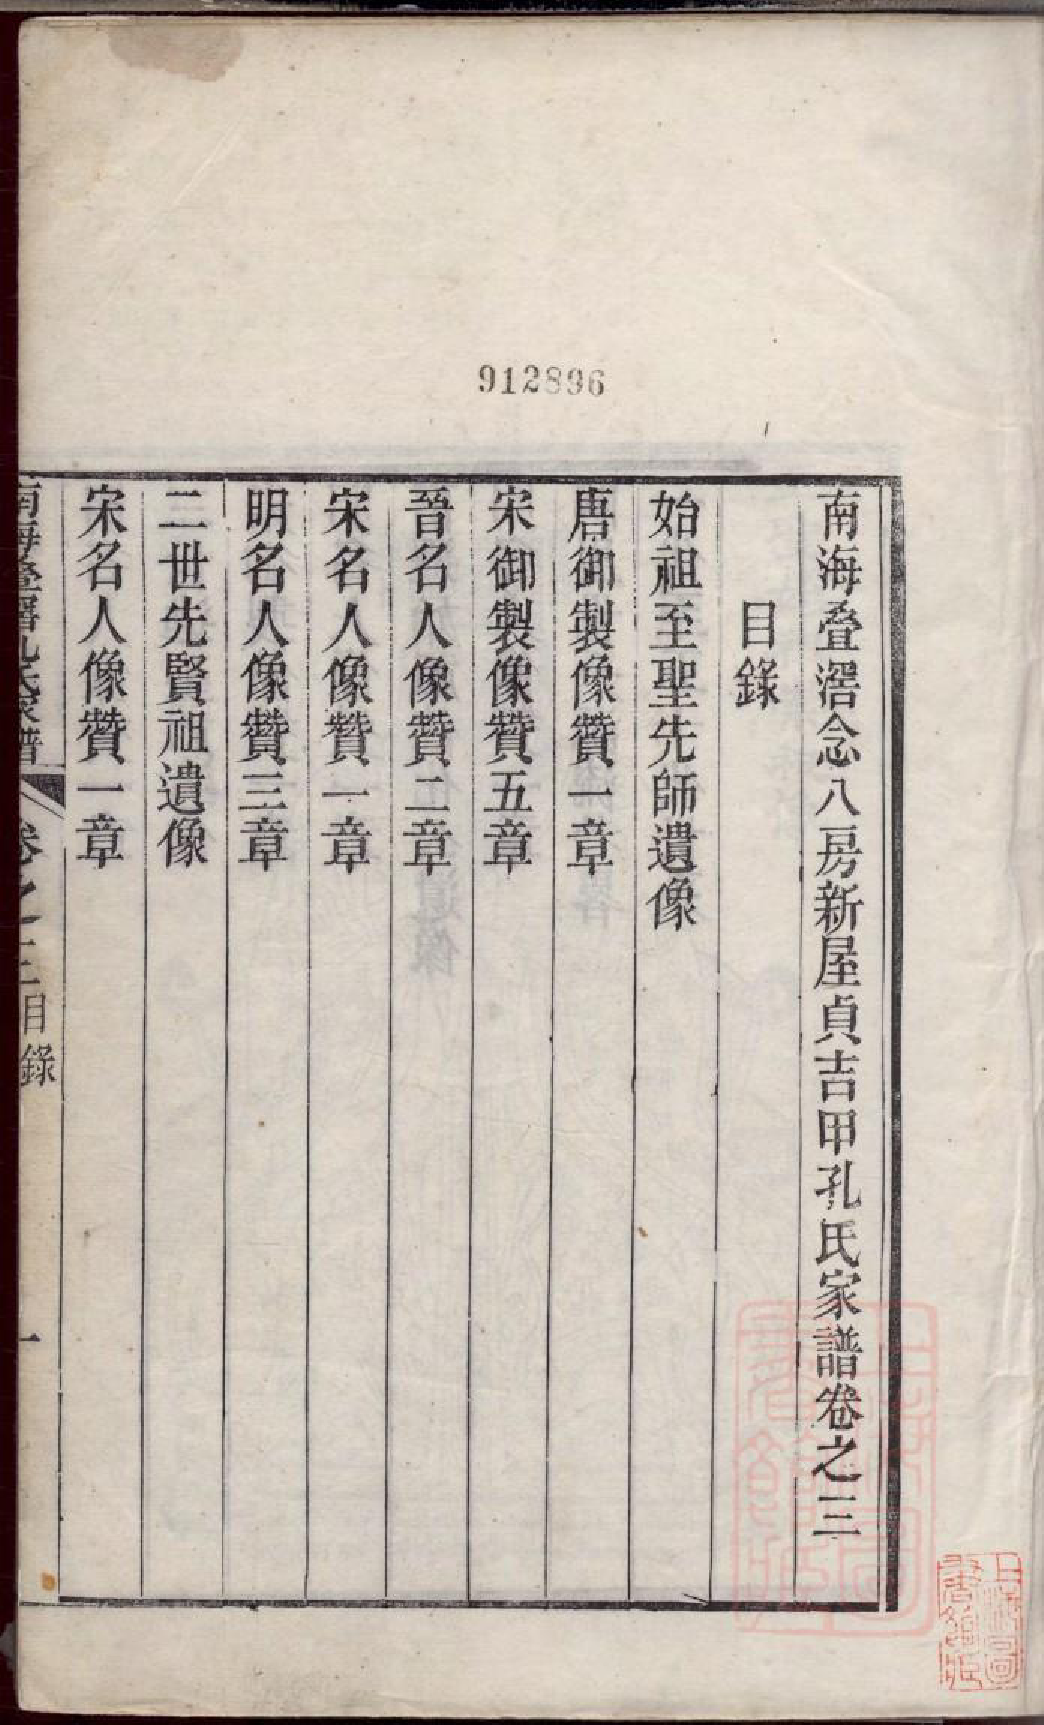 912896
南海叠滘念八房新屋貞吉甲孔氏家譜卷之三
目錄
始祖至聖先師遺像
唐御製像贊一章
宋御製像贊五章
晉名人像贊二章
宋名人像贊一章
明名人像贊三章
二世先賢祖遺像
宋名人像贊一章
南海叠滘孔氏家譜 卷之三 目錄 一
上海圖書館藏